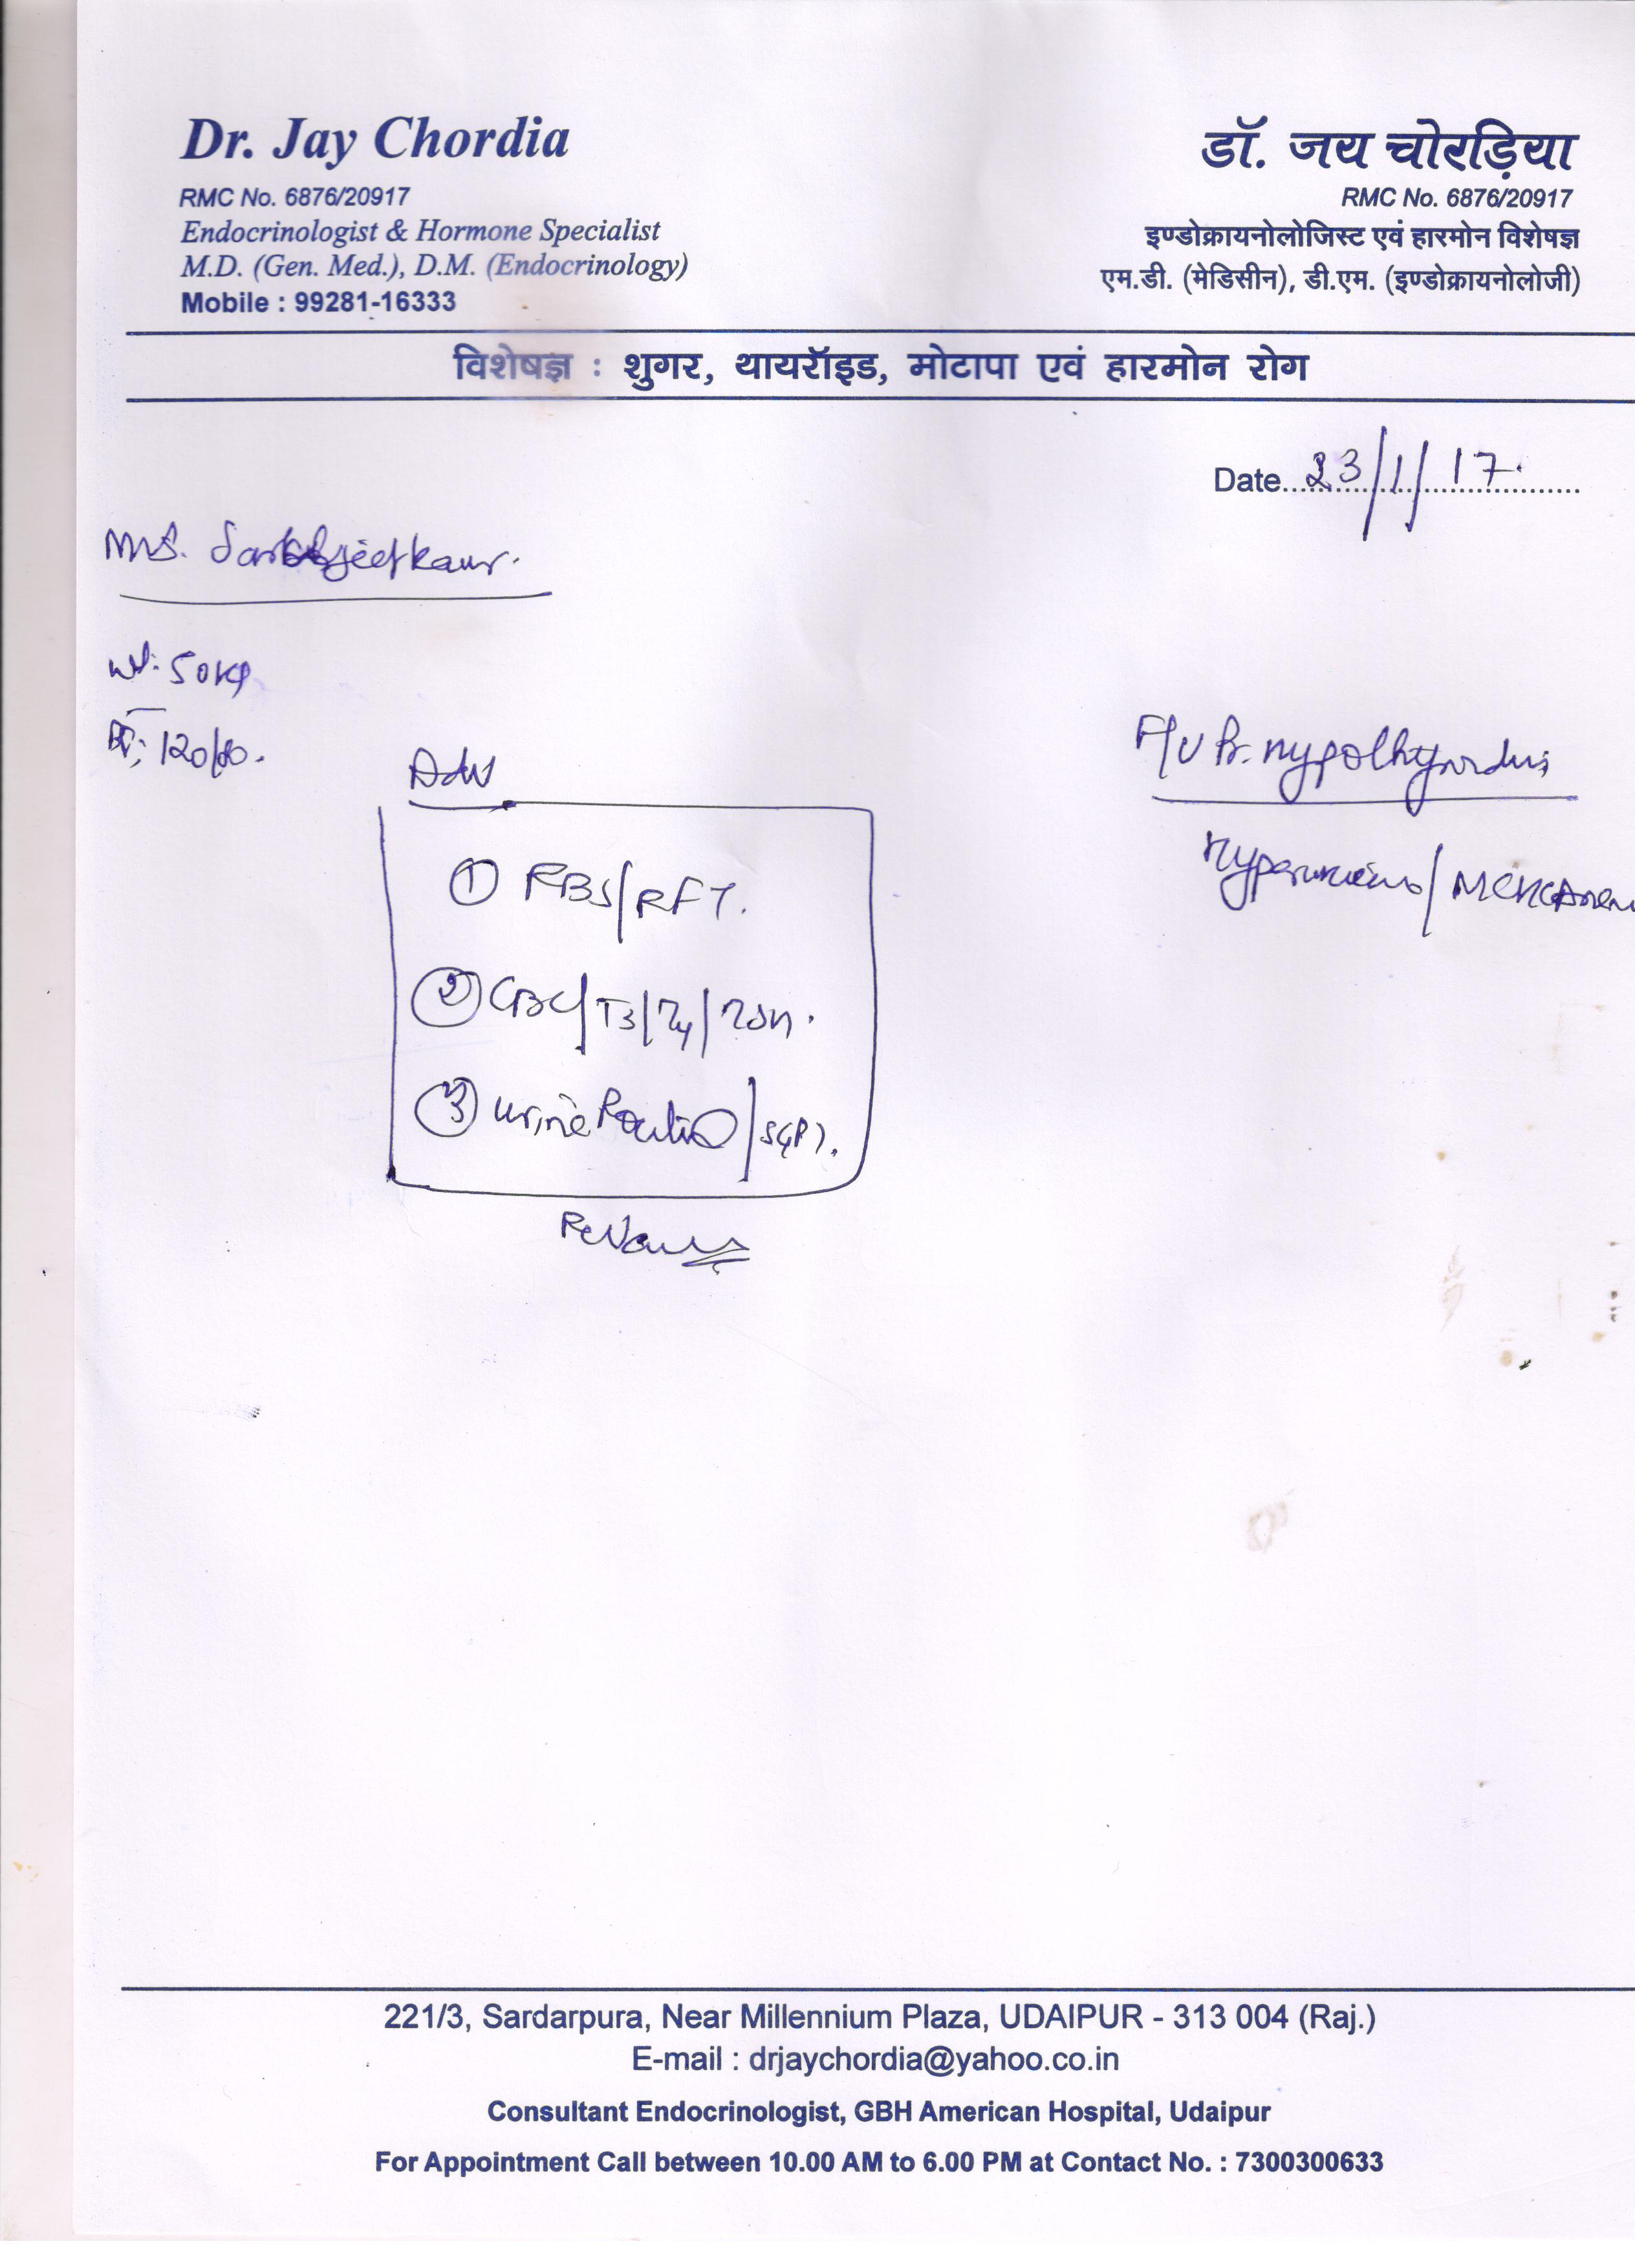 Dr. Jay Chordia
RMC No. 6876/20917
Endocrinologist & Hormone Specialist
M.D. (Gen. Med.), D.M. (Endocrinology)
Mobile : 99281-16333
डॉ. जय चोरड़िया
RMC No. 6876/20917
इण्डोक्रायनोलोजिस्ट एवं हारमोन विशेषज्ञ
एम.डी. (मेडिसीन), डी.एम. (इण्डोक्रायनोलोजी)
विशेषज्ञ : शुगर, थायरॉइड, मोटापा एवं हारमोन रोग
Date 23/1/17.
Mrs. Kaur.
Wt: 50 Kg
BP: 120/80.
F/U
Adv
① RBS/RFT.
② CBC/T3/T4/TSH.
③ Urine Routine/SGPT.
221/3, Sardarpura, Near Millennium Plaza, UDAIPUR - 313 004 (Raj.)
E-mail : drjaychordia@yahoo.co.in
Consultant Endocrinologist, GBH American Hospital, Udaipur
For Appointment Call between 10.00 AM to 6.00 PM at Contact No. : 7300300633